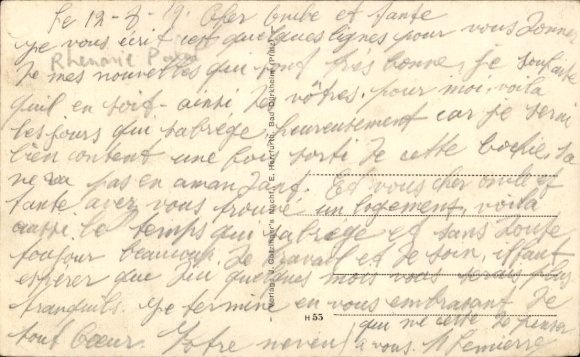 Le 12-8-19. Cher Oncle et tante
je vous écrit cest quelques lignes pour vous donner
de mes nouvelles qui sont tres bonne, je souhaite
Rhenanie
quil en soit ainsi de vôtres. pour moi, voila
les jours qui sabrège heureusement car je serai
bien content une fois sorti de cette bochie. sa
ne va pas en amandant. Et vous cher oncle et
tante avez vous trouvé un logement, voila
aussi le temps qui sabrège et sans doute
toujour beaucoup de travail et de soin, il faut
espérer que d'ici quelques mois vous serez plus
tranquils. Je termine en vous embrasant de
tout cœur. Votre neveu
qui ne cette de penser
a vous.
Verlag: J. Nachf., E. Herrfurth, Bad Dürkheim (Pfalz)
H 55